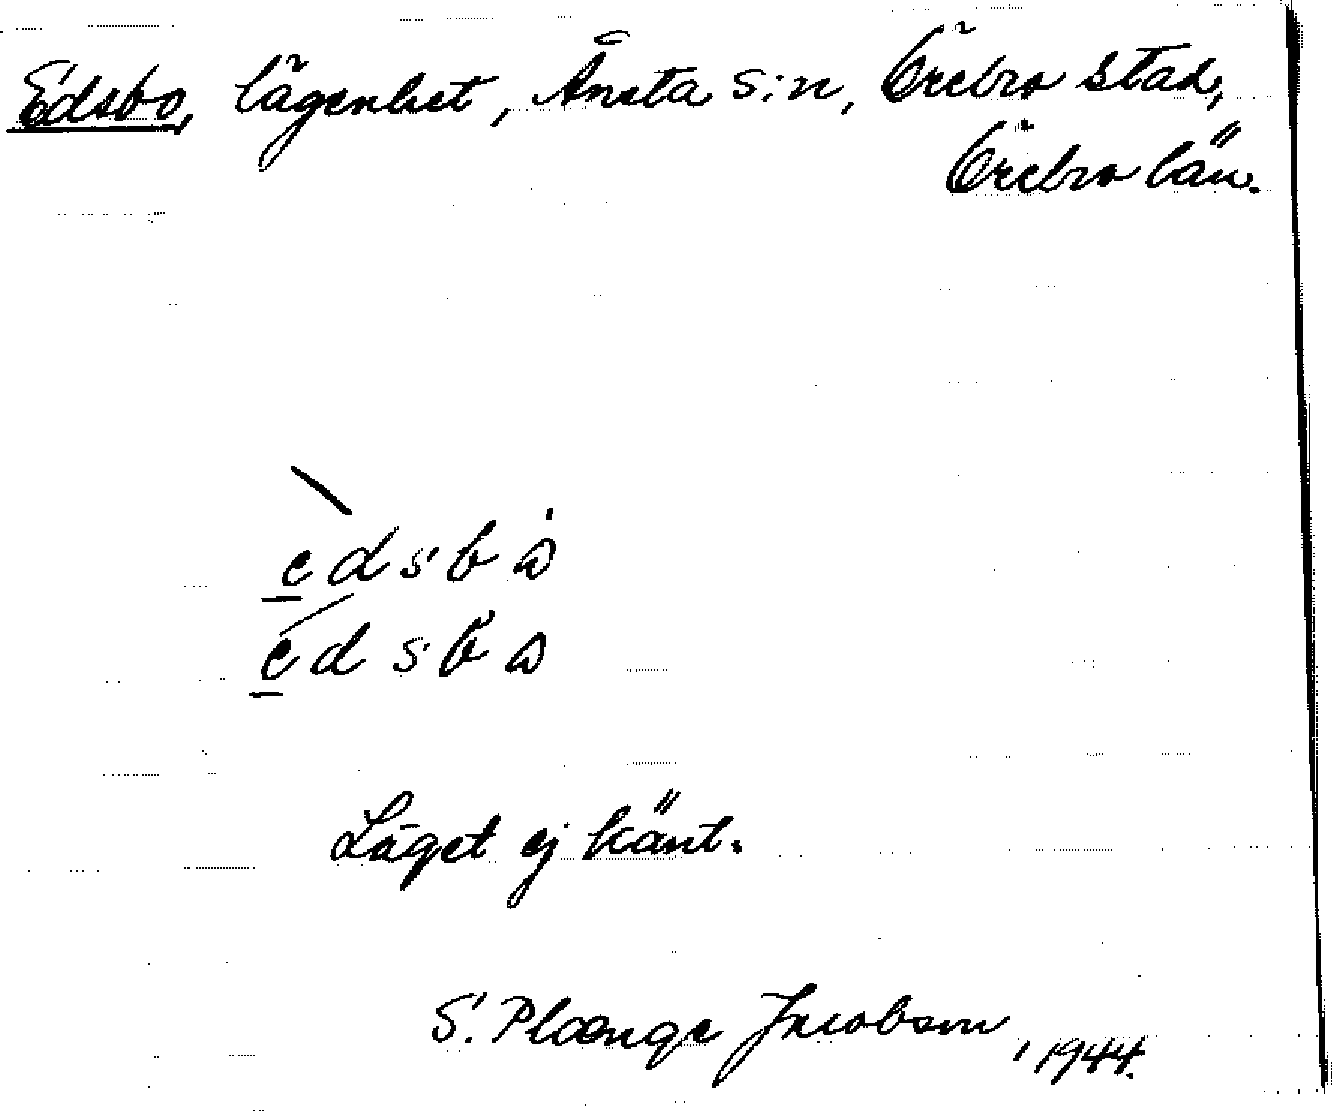 Edsbo, lägenhet, Ånsta s:n, Örebro stad,
Örebro län.
edsbω
edsbω
Läget ej känt.
S. Plænge Jacobson, 1944.